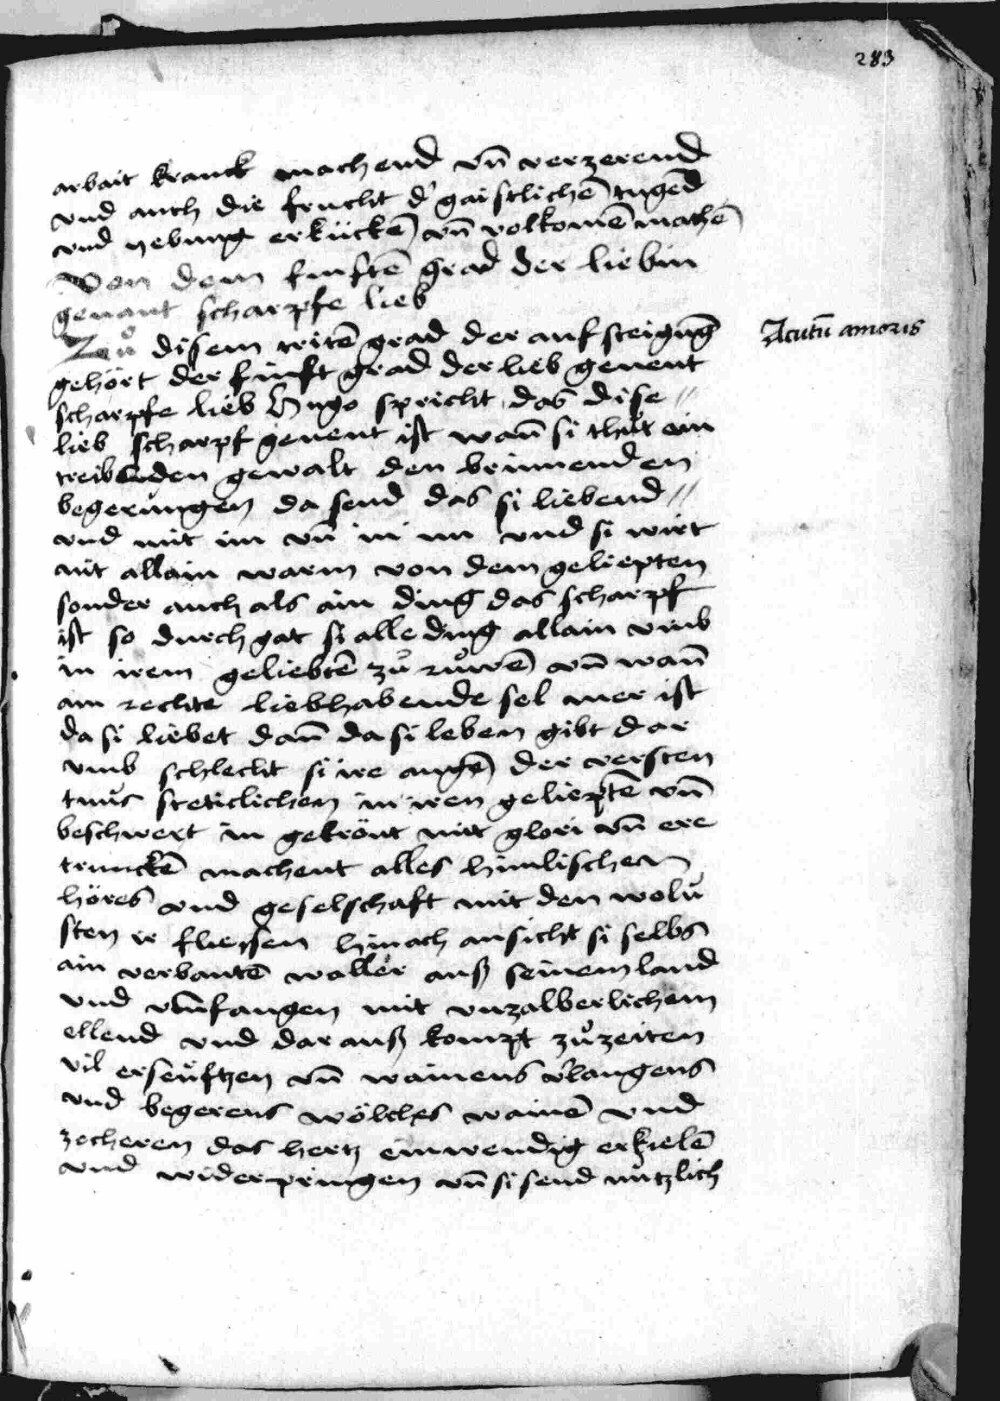 283
arbait kranck machend vn̄ verzerend
vnd auch die frucht d' gaistlichē tugēd
vnd yebung erkückē vn̄ volkomē machē
Von dem funftē grad der liebin
genant scharpfe lieb
Zů disem tritē grad der auf steigūg
Acutū amoris
gehört der fünft grad der lieb genent
scharpfe lieb Hugo spricht das dise
lieb scharpf genent ist wañ si thůt ain
treibenden gewalt den brinnenden
begerungen da send das si liebend
vnd mit im vn̄ in im vnd si wirt
nit allain warm von dem geliepten
sonder auch als ain ding das scharpf
ist so durch gat si alle ding allain vmb
in irem geliebtē zů růwē vn̄ wañ
ain rechte liebhabende sel mer ist
da si liebet dañ da si leben gibt dar
vmb schlecht si ire augē der versten
tnus steticlichen in iren geliepte vn̄
beschwert in gekrönt mit glori vn̄ ere
trunckē machent alles himlischen
höres vnd geselschaft mit den wolu
sten er fliessen hinach ansicht si selbs
ain verbantē waller auß seinem land
vnd vmfangen mit vnzalberlichem
ellend vnd dar auß kompt zů zeiten
vil erseuftzen vn̄ wainens v'langens
vnd begerens wölches wainē vnd
zecheren das hertz einwendig erkielē
vnd widerpringen vn̄ si send nutzlich